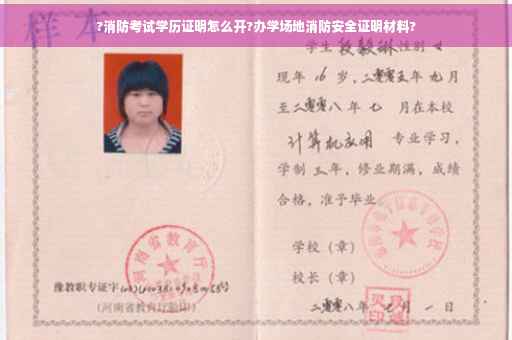 ?消防考试学历证明怎么开?办学场地消防安全证明材料?
样本
学生段毅琳性别女
现年16岁,二零零五年九月
至二零零八年七月在本校
计算机应用 专业学习,
学制三年,修业期满,成绩
合格,准予毕业。
学校(章)
校长(章)
二零零八年 月一日
河南省教育厅
豫教职专证字
(河南省教育厅验印)